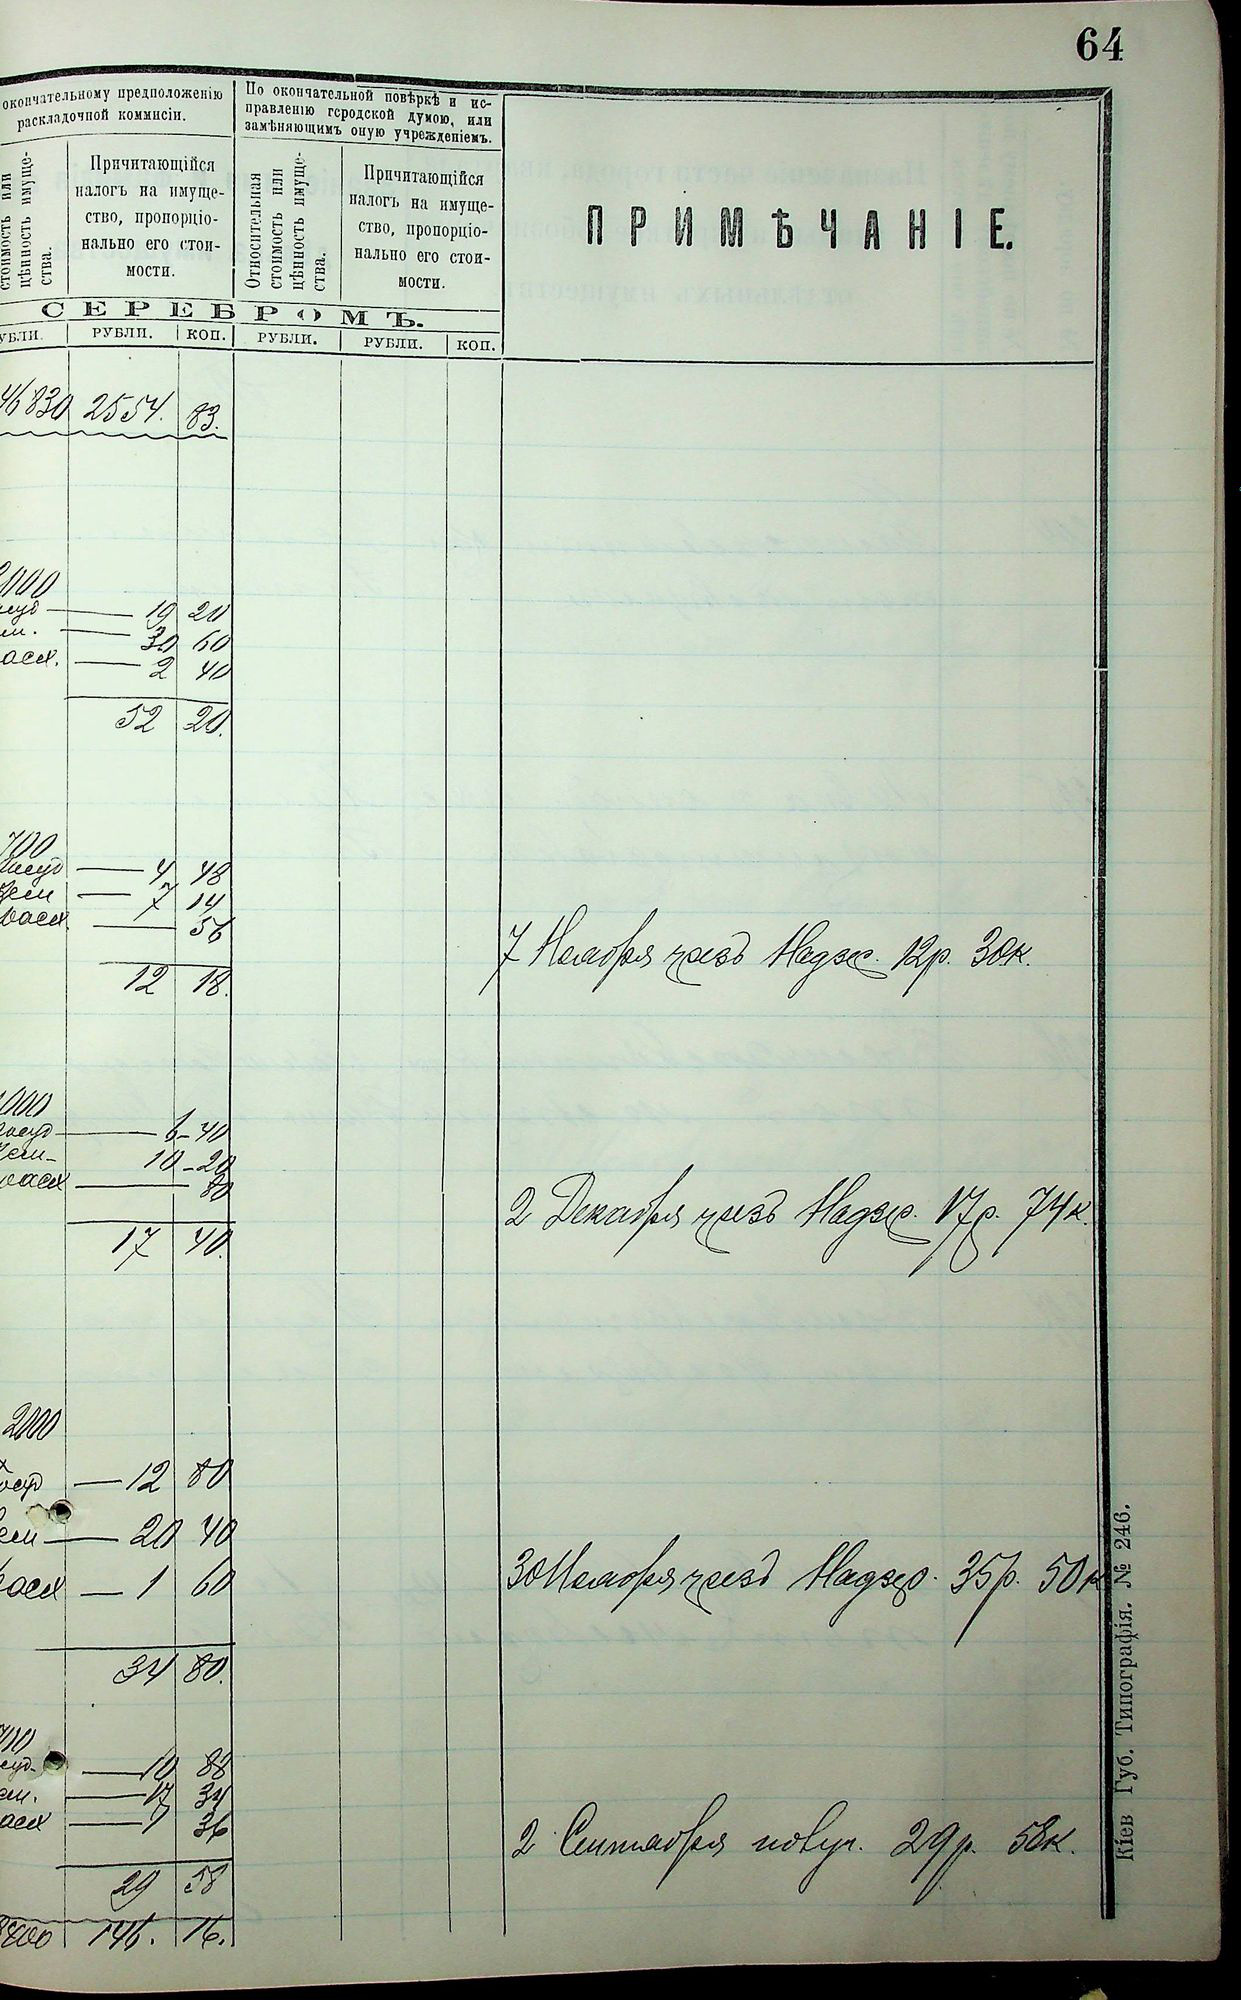 64
окончательному предположенію
раскладочной коммисіи.
По окончательной повѣркѣ и ис-
правленію городской думою, или
замѣняющимъ оную учрежденіемъ.
стоимость или
цѣнность имуще-
ства.
Причитающійся
налогъ на имуще-
ство, пропорціо-
нально его стои-
мости.
Относительная
стоимость или
цѣнность имуще-
ства.
Причитающійся
налогъ на имуще-
ство, пропорціо-
нально его стои-
мости.
ПРИМѢЧАНІЕ.
СЕРЕБРОМЪ.
УБЛИ. РУБЛИ. КОП. РУБЛИ. РУБЛИ. КОП.
46830 2554. 83.
19 20
30 60
асх. — 2 40
52 20.
700
— 4 48
Зем — 7 14
— 56
12 18.
7 Ноября чрезъ Надзер. 12р. 30к.
000
6 – 40
Зем – 10 – 20
80
17 40.
2 Декабря чрезъ Надзер. 17р. 74к.
2000
— 12 80
ем — 20 40
— 1 60
34 80.
30 Ноября чрезъ Надзер. 35р. 50к
700
— 10 88
ем. — 17 34
асх — 1 36
29 58
2 Сентября 29р. 58к.
8400 146. 16.
Кіев Губ. Типографія. № 246.